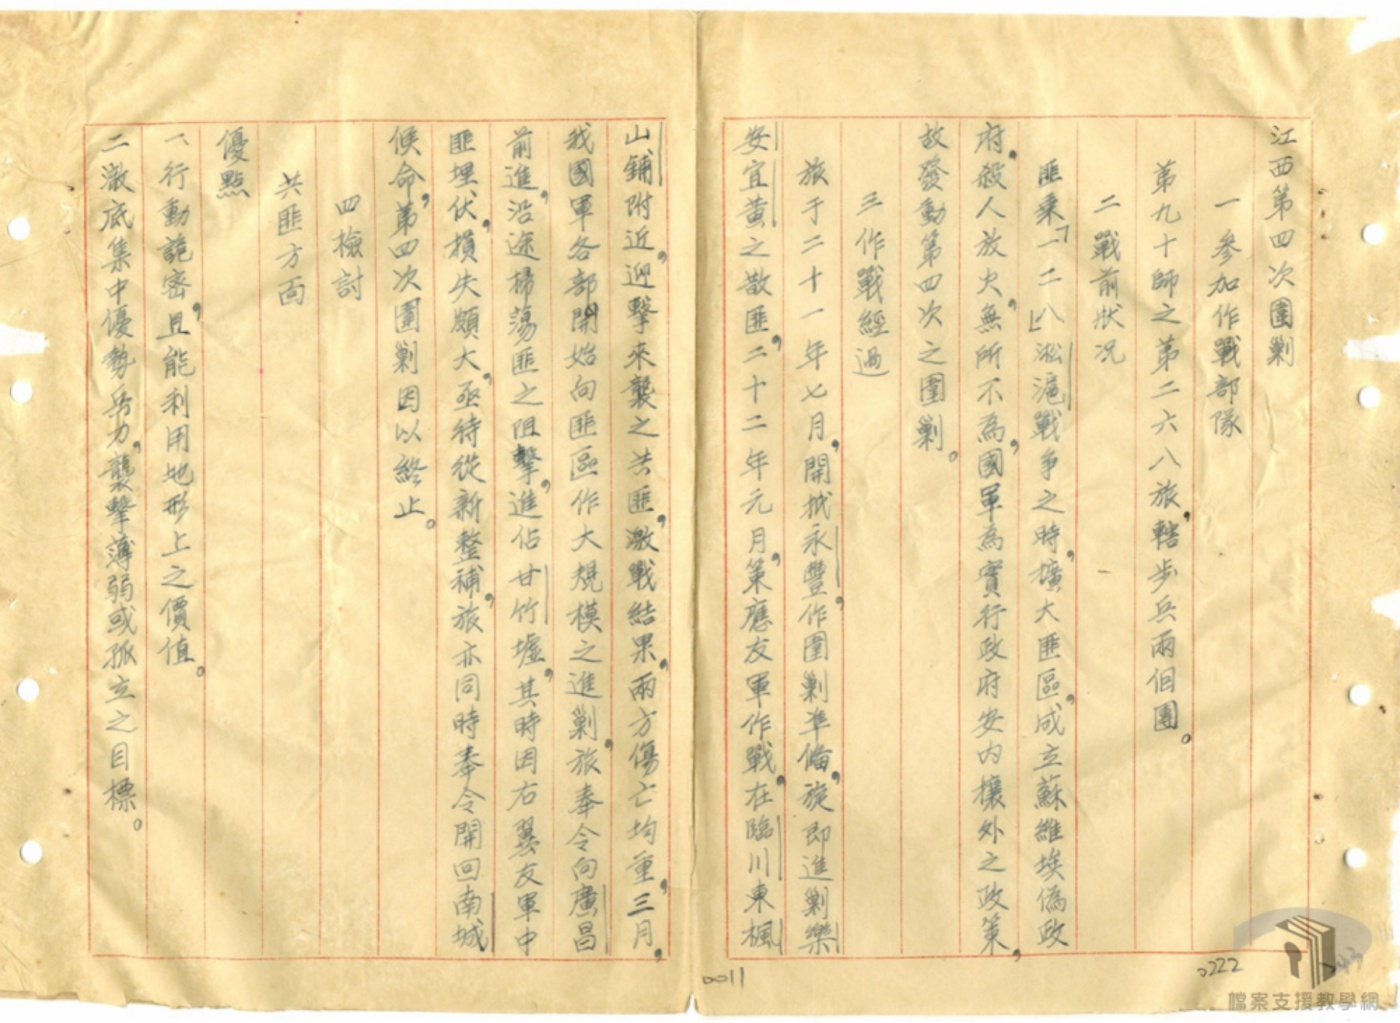 江西第四次圍剿
一參加作戰部隊
第九十師之第二六八旅,轄步兵兩個團。
二戰前狀況
匪乘「一二八」淞滬戰爭之時,擴大匪區,成立蘇維埃偽政
府,殺人放火,無所不為,國軍為實行政府安內攘外之政策,
故發動第四次之圍剿。
三作戰經過
旅于二十一年七月,開抵永豐,作圍剿準備,旋即進剿樂
安宜黃之散匪,二十二年元月,策應友軍作戰,在臨川東楓
山鋪附近,迎擊來襲之共匪,激戰結果,兩方傷亡均重,三月,
我國軍各部開始向匪區作大規模之進剿,旅奉令向廣昌
前進,沿途掃蕩匪之阻擊,進佔甘竹墟,其時因右翼友軍中
匪埋伏,損失頗大,亟待從新整補,旅亦同時奉令開回南城
候命,第四次圍剿因以終止。
四檢討
共匪方面
優點
一、行動詭密,且能利用地形上之價值。
二澈底集中優勢兵力,襲擊薄弱或孤立之目標。
0011
0222
檔案支援教學網